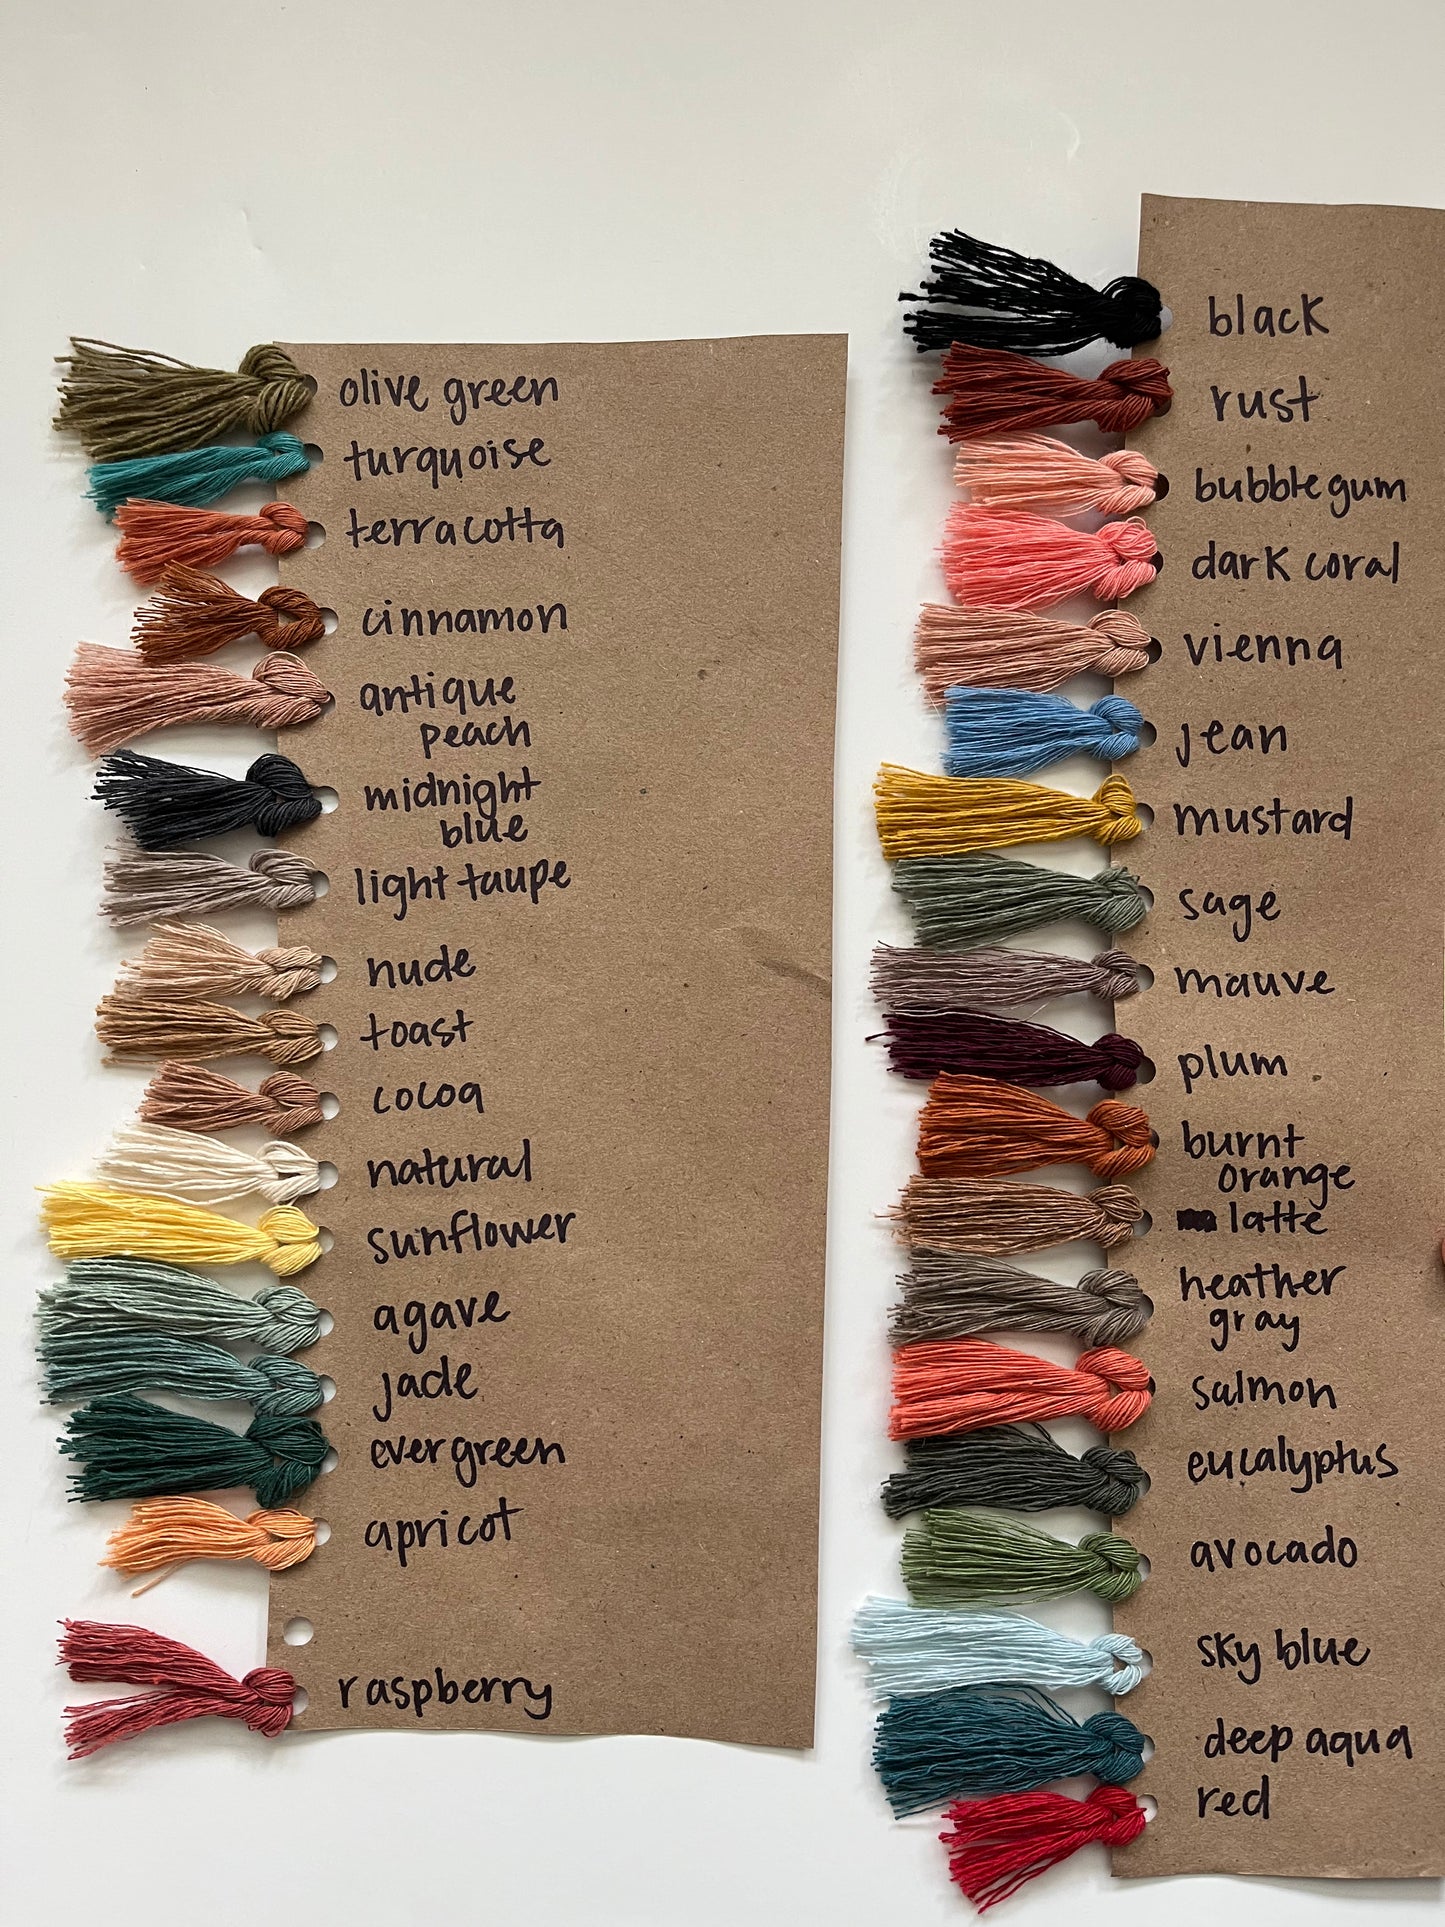 olive green
turquoise
terracotta
cinnamon
antique
peach
midnight
blue
light taupe
nude
toast
cocoa
natural
sunflower
agave
jade
evergreen
apricot
raspberry
black
rust
bubblegum
dark coral
vienna
jean
mustard
sage
mauve
plum
burnt
orange
latte
heather
gray
salmon
eucalyptus
avocado
sky blue
deep aqua
red